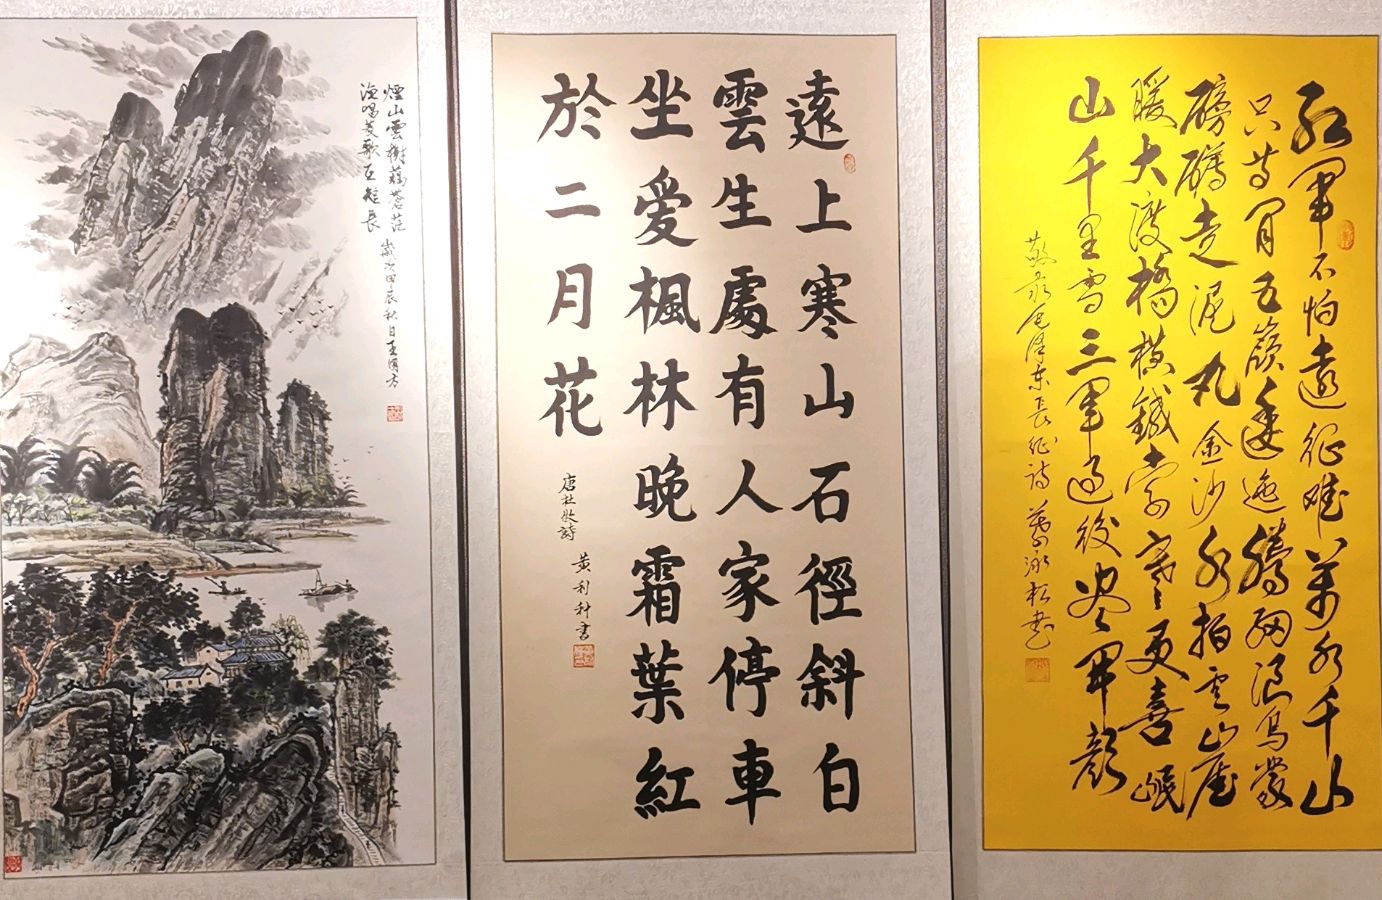 煙山雲樹藹蒼茫
漁唱菱歌互短長
歲次甲辰秋日
遠上寒山石徑斜白
雲生處有人家停車
坐愛楓林晚霜葉紅
於二月花
唐杜牧詩
黄利科書
紅軍不怕遠征難萬水千山
只等閒五嶺逶迤騰細浪烏蒙
磅礴走泥丸金沙水拍雲山崖
暖大渡橋橫鐵索寒更喜岷
山千里雪三軍過後盡開顏
敬錄毛澤东長征詩 泳松书